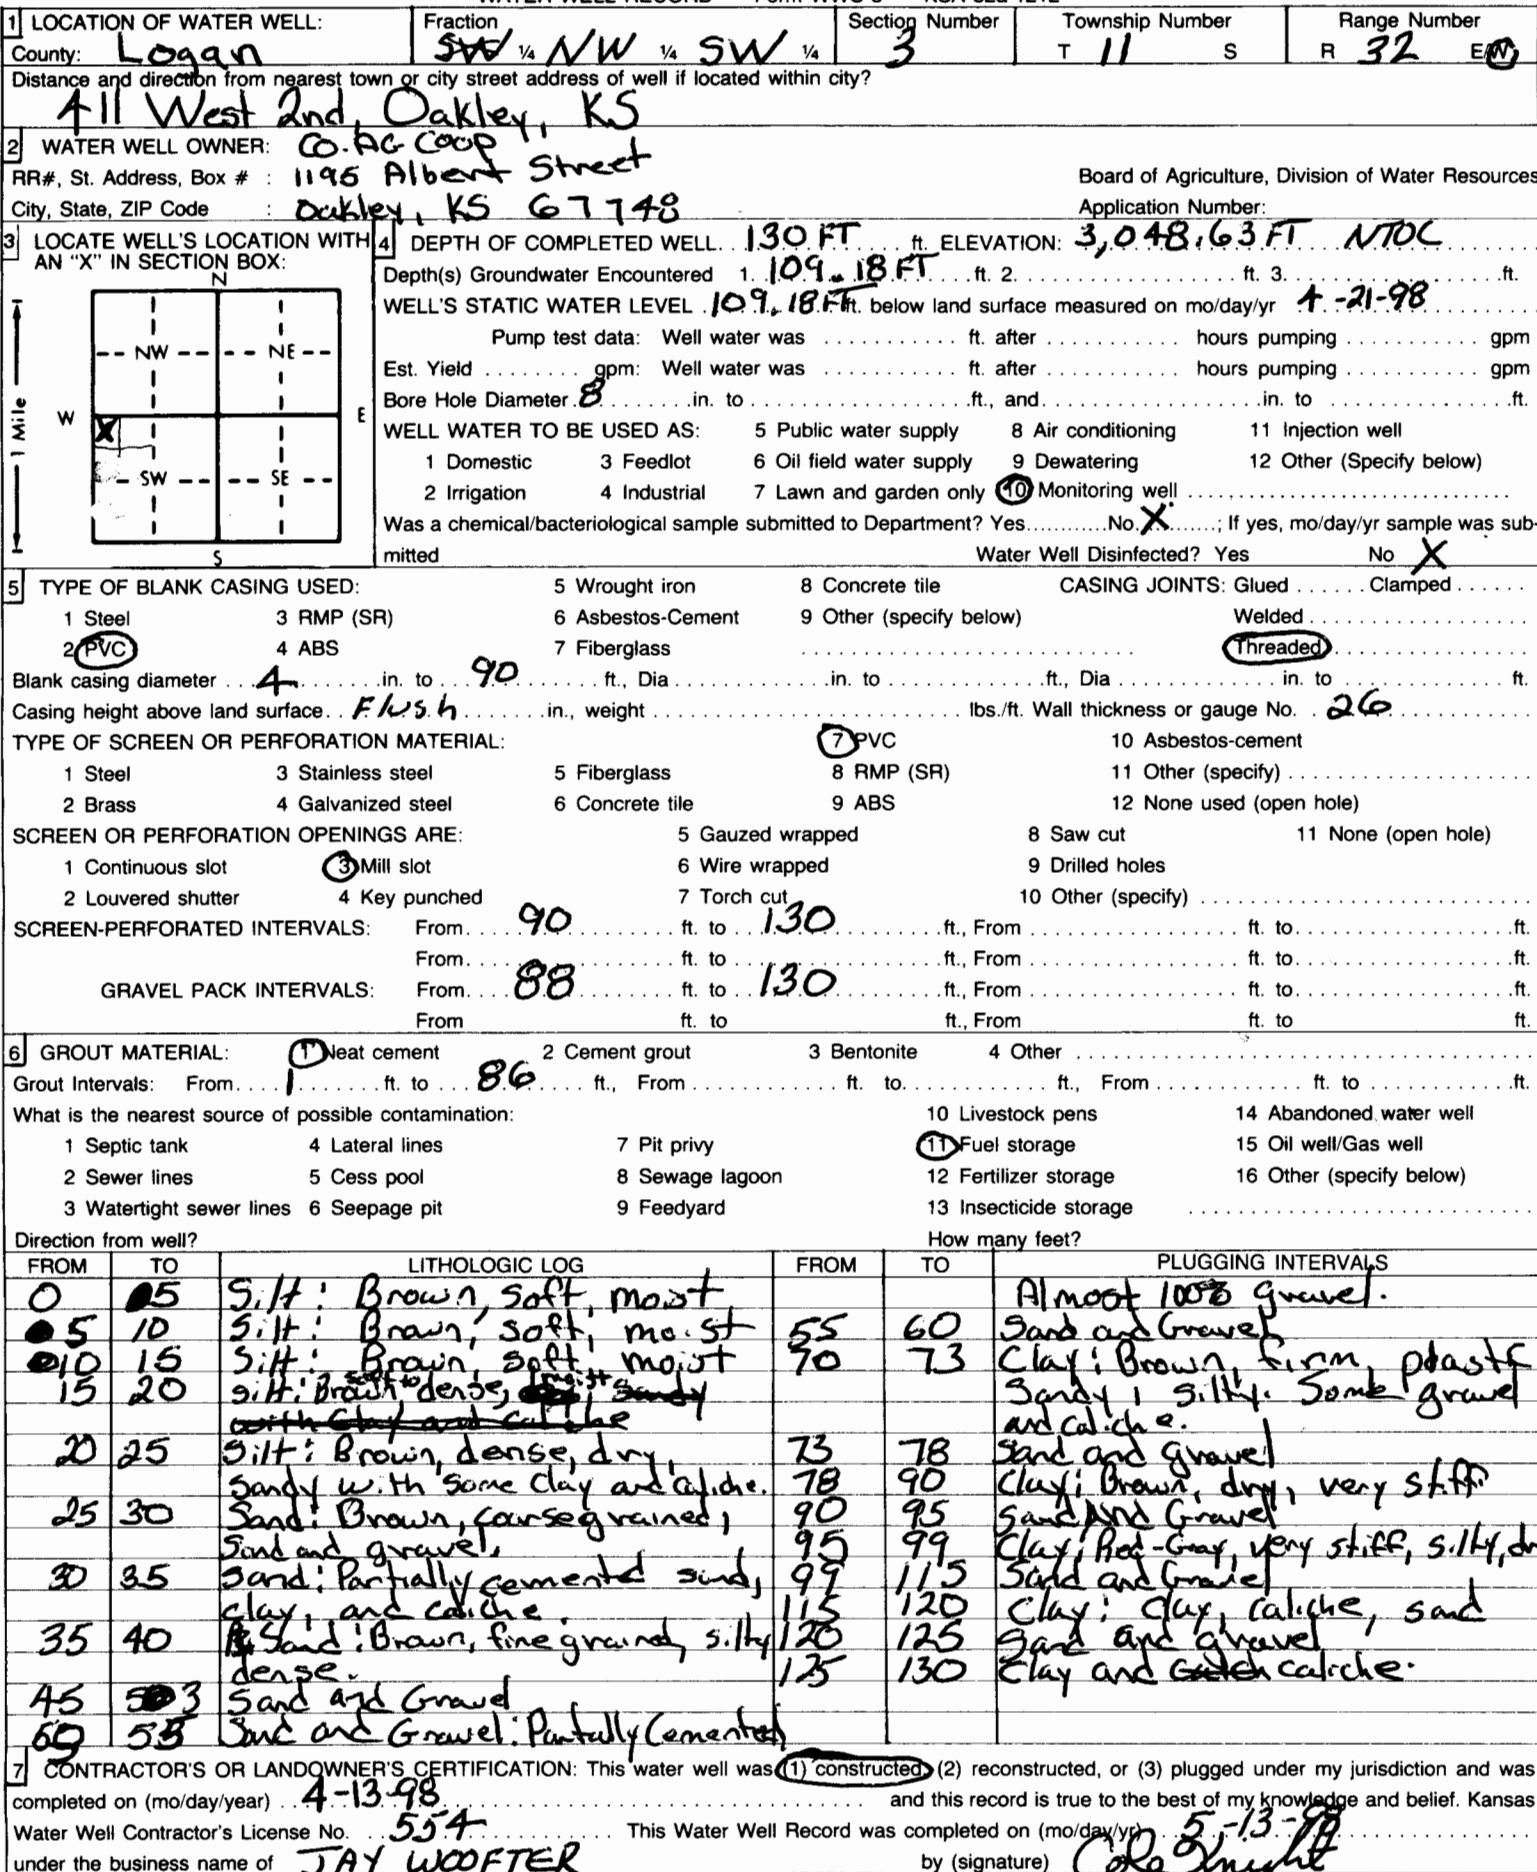 1 LOCATION OF WATER WELL: Fraction Section Number Township Number Range Number
County: Logan SW ¼ NW ¼ SW ¼ 3 T 11 S R 32 E/W
Distance and direction from nearest town or city street address of well if located within city?
411 West 2nd, Oakley, KS
2 WATER WELL OWNER: CO. AG COOP
RR#, St. Address, Box # : 1195 Albert Street Board of Agriculture, Division of Water Resources
City, State, ZIP Code : Oakley, KS 67748 Application Number:
3 LOCATE WELL'S LOCATION WITH AN "X" IN SECTION BOX:
N
NW NE
W E
X
SW SE
S
1 Mile
4 DEPTH OF COMPLETED WELL 130 FT ft. ELEVATION: 3,048.63 FT NTOC
Depth(s) Groundwater Encountered 1. 109.18 FT ft. 2. ft. 3. ft.
WELL'S STATIC WATER LEVEL 109.18 FT ft. below land surface measured on mo/day/yr 4-21-98
Pump test data: Well water was ft. after hours pumping gpm
Est. Yield gpm: Well water was ft. after hours pumping gpm
Bore Hole Diameter 8 in. to ft., and in. to ft.
WELL WATER TO BE USED AS: 5 Public water supply 8 Air conditioning 11 Injection well
1 Domestic 3 Feedlot 6 Oil field water supply 9 Dewatering 12 Other (Specify below)
2 Irrigation 4 Industrial 7 Lawn and garden only 10 Monitoring well
Was a chemical/bacteriological sample submitted to Department? Yes No X ; If yes, mo/day/yr sample was sub-
mitted Water Well Disinfected? Yes No X
5 TYPE OF BLANK CASING USED: 5 Wrought iron 8 Concrete tile CASING JOINTS: Glued Clamped
1 Steel 3 RMP (SR) 6 Asbestos-Cement 9 Other (specify below) Welded
2 PVC 4 ABS 7 Fiberglass Threaded
Blank casing diameter 4 in. to 90 ft., Dia in. to ft., Dia in. to ft.
Casing height above land surface Flush in., weight lbs./ft. Wall thickness or gauge No. 26
TYPE OF SCREEN OR PERFORATION MATERIAL: 7 PVC 10 Asbestos-cement
1 Steel 3 Stainless steel 5 Fiberglass 8 RMP (SR) 11 Other (specify)
2 Brass 4 Galvanized steel 6 Concrete tile 9 ABS 12 None used (open hole)
SCREEN OR PERFORATION OPENINGS ARE: 5 Gauzed wrapped 8 Saw cut 11 None (open hole)
1 Continuous slot 3 Mill slot 6 Wire wrapped 9 Drilled holes
2 Louvered shutter 4 Key punched 7 Torch cut 10 Other (specify)
SCREEN-PERFORATED INTERVALS: From 90 ft. to 130 ft., From ft. to ft.
From ft. to ft., From ft. to ft.
GRAVEL PACK INTERVALS: From 88 ft. to 130 ft., From ft. to ft.
From ft. to ft., From ft. to ft.
6 GROUT MATERIAL: 1 Neat cement 2 Cement grout 3 Bentonite 4 Other
Grout Intervals: From 1 ft. to 86 ft., From ft. to ft., From ft. to ft.
What is the nearest source of possible contamination: 10 Livestock pens 14 Abandoned water well
1 Septic tank 4 Lateral lines 7 Pit privy 11 Fuel storage 15 Oil well/Gas well
2 Sewer lines 5 Cess pool 8 Sewage lagoon 12 Fertilizer storage 16 Other (specify below)
3 Watertight sewer lines 6 Seepage pit 9 Feedyard 13 Insecticide storage
Direction from well? How many feet?
FROM TO LITHOLOGIC LOG FROM TO PLUGGING INTERVALS
0 5 Silt: Brown, soft, moist Almost 100% gravel.
5 10 Silt: Brown, soft, moist 55 60 Sand and Gravel
10 15 Silt: Brown, soft, moist 70 73 Clay: Brown, firm, plastc
15 20 silt: Brown soft to dense, moist, Sandy Sandy, silty. Some gravel
with Clay and caliche and caliche.
20 25 Silt: Brown, dense, dry, 73 78 Sand and gravel
Sandy with some Clay and caliche. 78 90 Clay: Brown, dry, very stiff
25 30 Sand: Brown, coarse grained, 90 95 Sand And Gravel
Sand and gravel. 95 99 Clay: Red-Gray, very stiff, silty, dr
30 35 Sand: Partially cemented sand, 99 115 Sand and Gravel
clay, and caliche. 115 120 Clay: Clay, caliche, sand
35 40 Sand: Brown, fine grained, silty 120 125 Sand and gravel
dense. 125 130 Clay and caliche.
45 53 Sand and Gravel
55 Sand and Gravel: Partally Cemented
7 CONTRACTOR'S OR LANDOWNER'S CERTIFICATION: This water well was (1) constructed, (2) reconstructed, or (3) plugged under my jurisdiction and was
completed on (mo/day/year) 4-13-98 and this record is true to the best of my knowledge and belief. Kansas
Water Well Contractor's License No. 554 This Water Well Record was completed on (mo/day/yr) 5-13-98
under the business name of JAY WOOFTER by (signature)